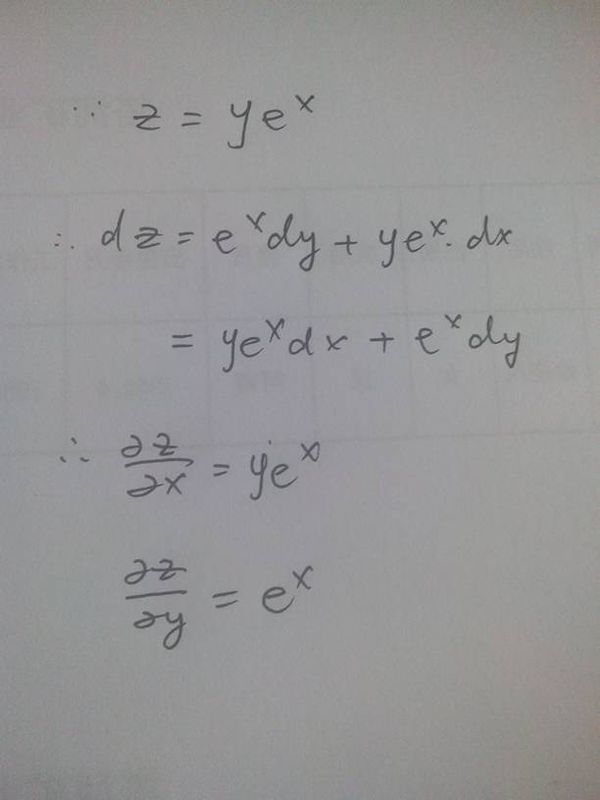 ∵ z = yeˣ
∴ dz = eˣdy + yeˣ· dx
= yeˣdx + eˣdy
∴ ∂z/∂x = yeˣ
∂z/∂y = eˣ